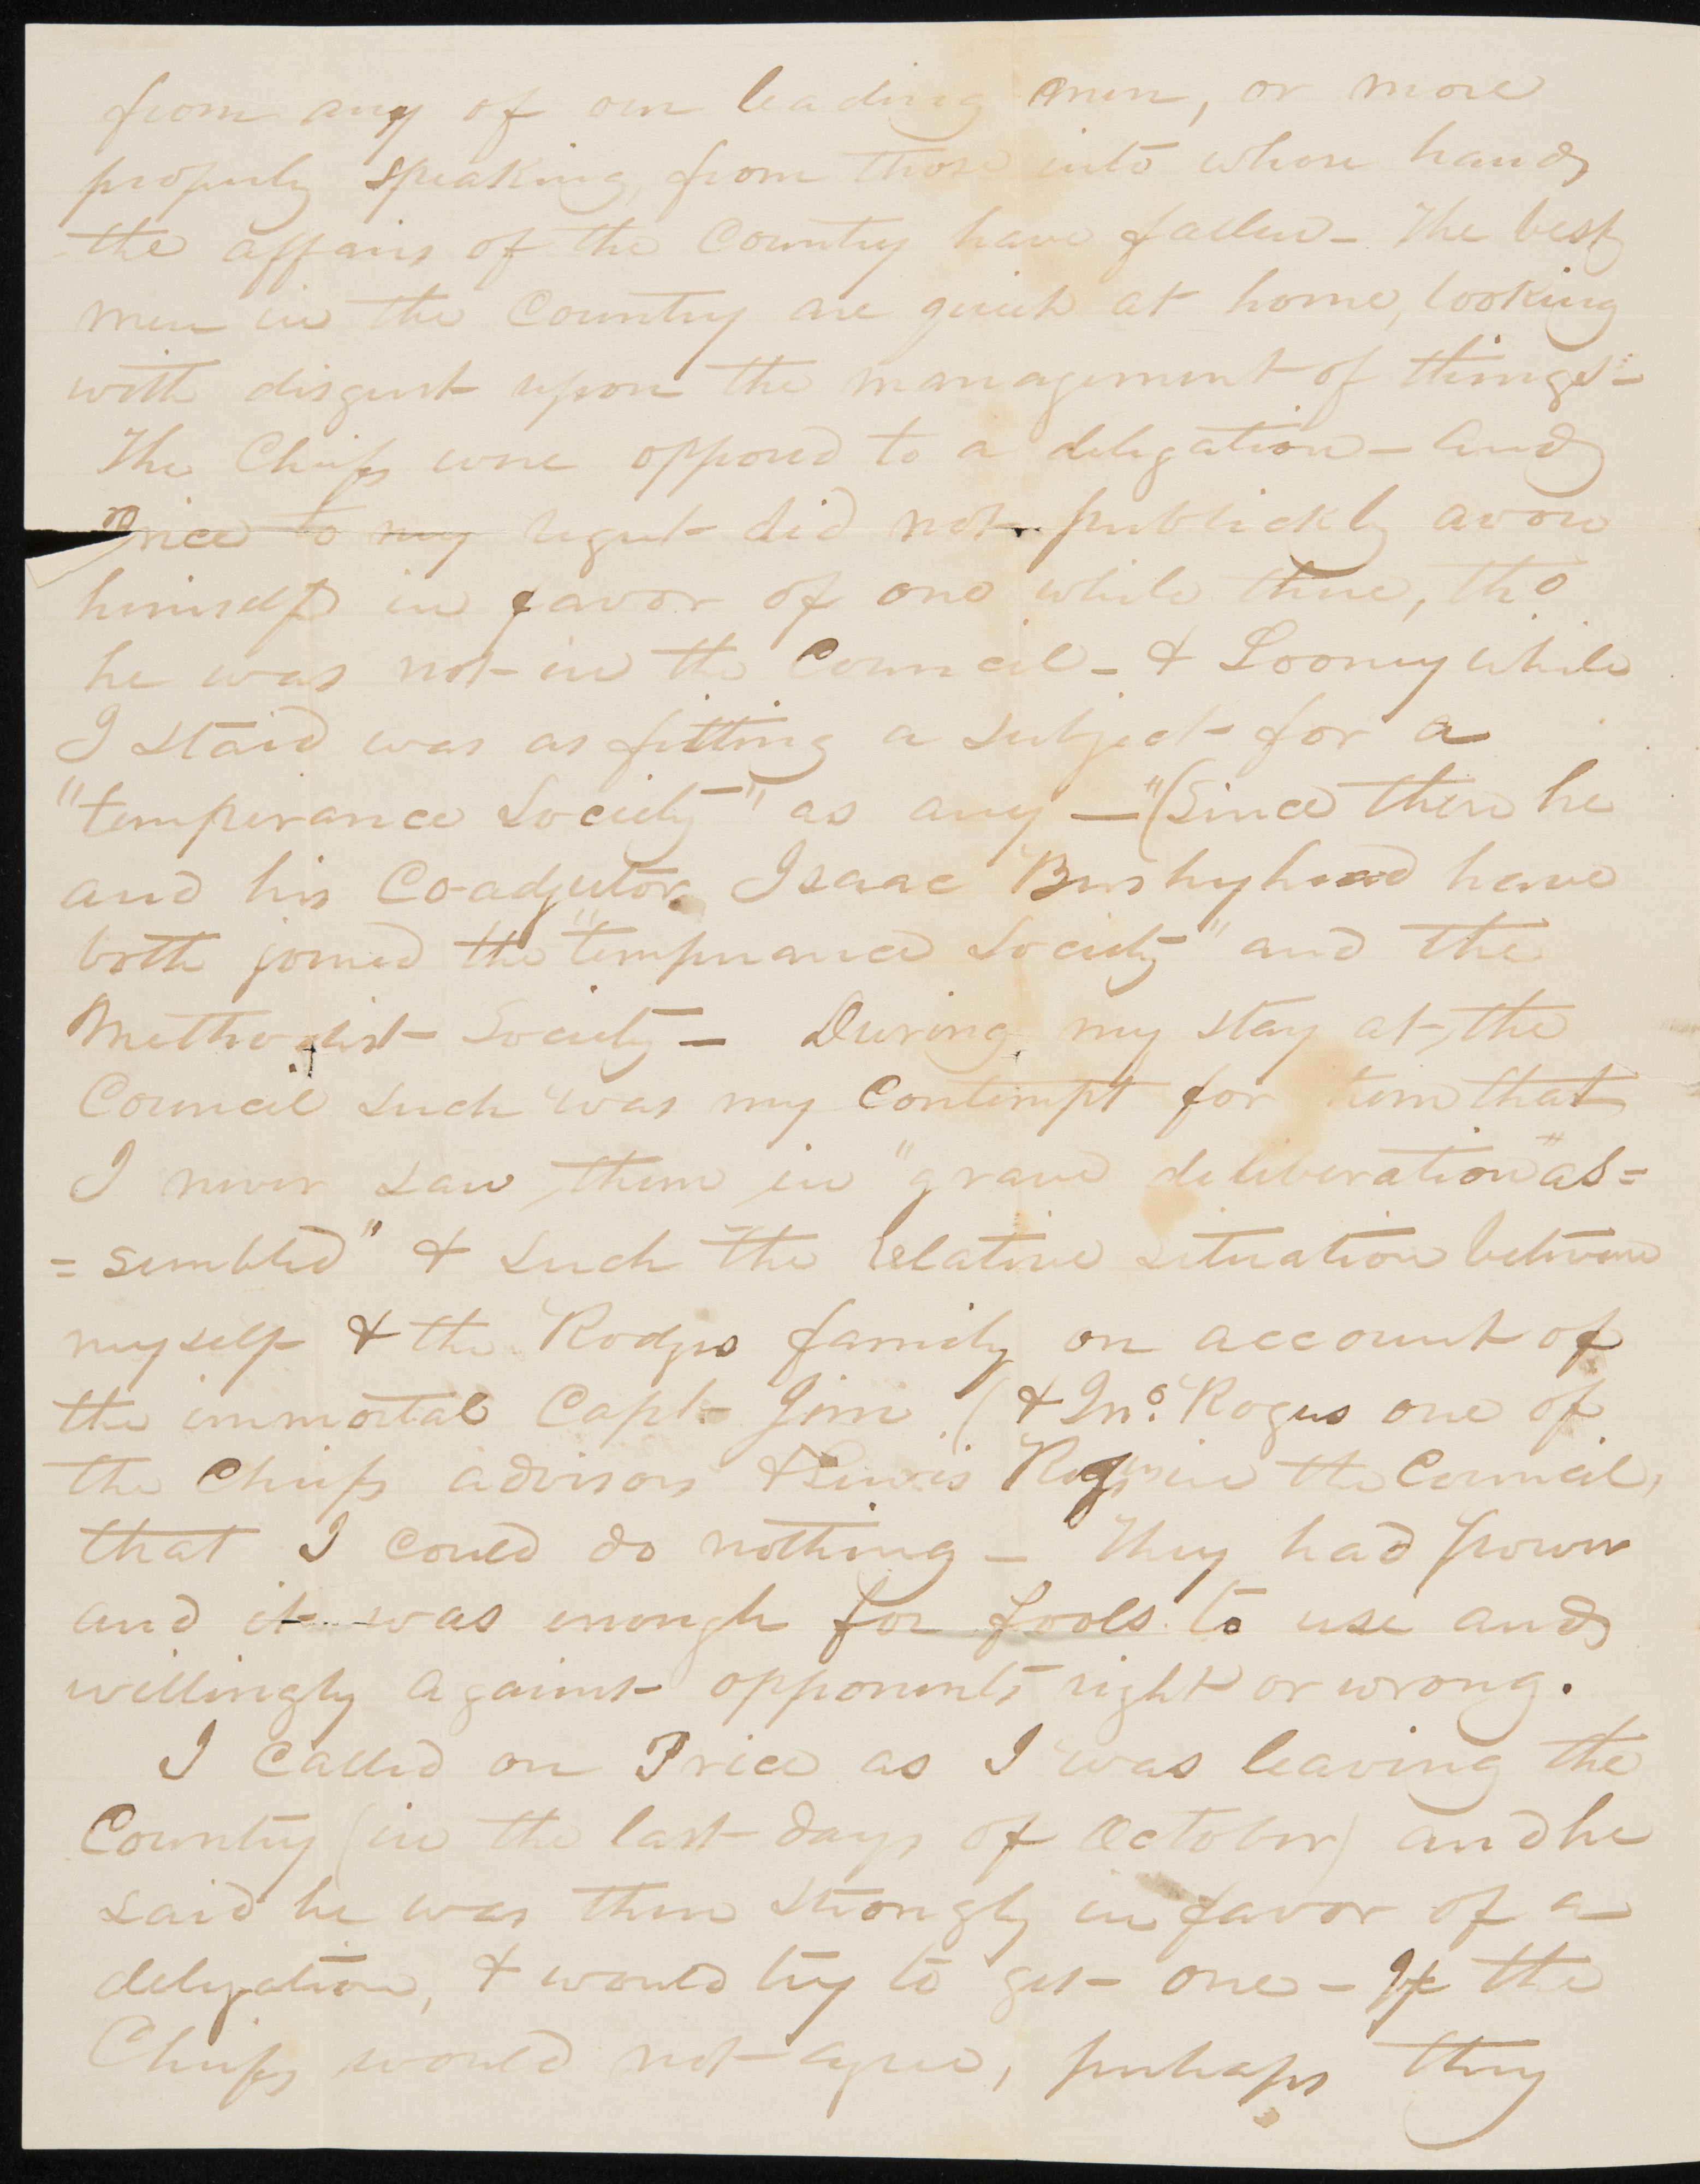 from any of our leading men, or more
properly speaking, from those into whose hands
the affairs of the Country have fallen - The best
men in the Country are quiet at home, looking
with disgust upon the management of things -
The Chiefs were opposed to a delegation - and
Price to my regret did not publickly avow
himself in favor of one while there, tho
he was not in the Council - & Looney while
I staid was as fitting a subject for a
"temperance Society" as any — "(Since then he
and his Co-adjutor, Isaac Bushyhead have
both joined the "temperance Society" and the
Methodist Society - During my stay at the
Council such was my contempt for them that
I never saw them in "grave deliberation" as=
=sembled" & such the relative situation between
myself & the Rodgers family on account of
the immortal Capt Jim (& Jno. Rogers one of
the Chiefs advisors & Lewis Rogers in the Council,
that I could do nothing - They had power
and it was enough for fools to use and
willingly against opponents right or wrong.
I called on Price as I was leaving the
Country (in the last days of October) and he
said he was then strongly in favor of a
delegation, & would try to get one - If the
Chiefs would not agree, perhaps they